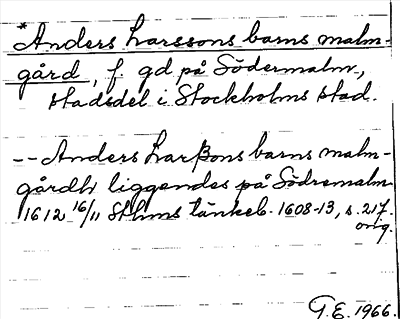 *Anders Larssons barns malm-
gård, f. gd på Södermalm,
stadsdel i Stockholms stad.
-- Anders Larßons barns malm-
gårdh liggendes på Södremalm
1612 16/11 Sthms tänkeb. 1608-13, s. 217.
orig.
G.E. 1966.